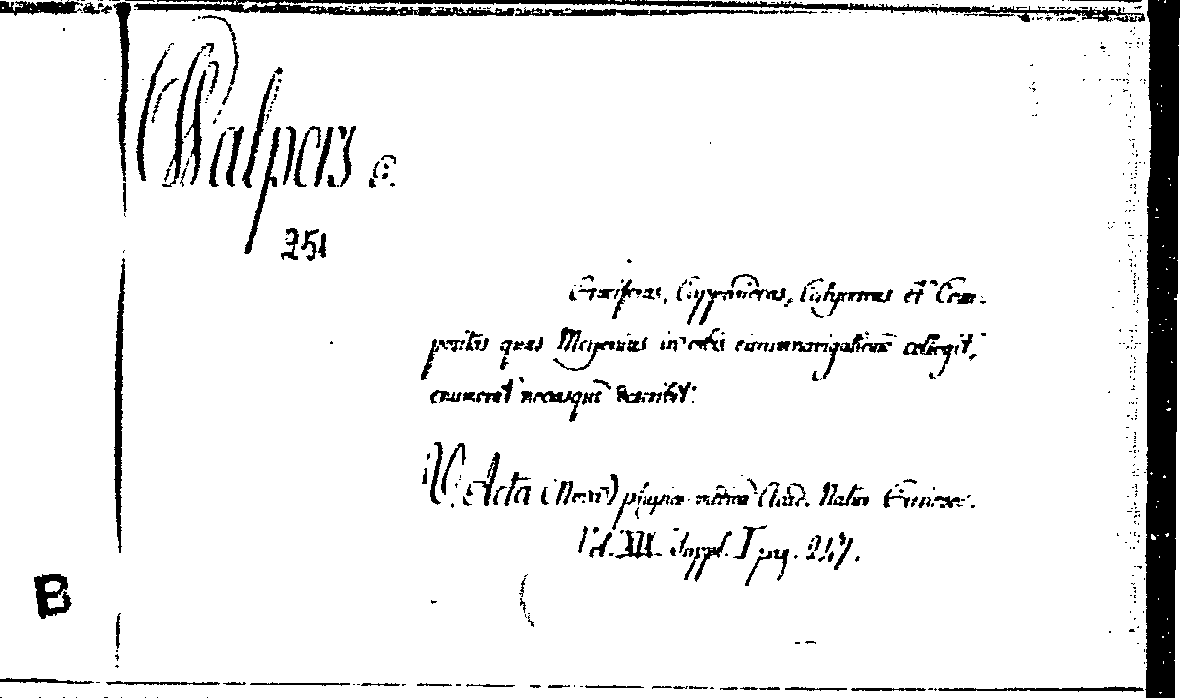 Walpers G.
251
Cruciferas, Capparideas, Calycereas et Com-
positas quas Meyenius in orbis circumnavigatione collegit,
enumerat novasque describit.
V. Acta (Nova) physico-medica Acad. Natur. Curiosor.
Vol. XIX. Suppl. I pag. 247.
B